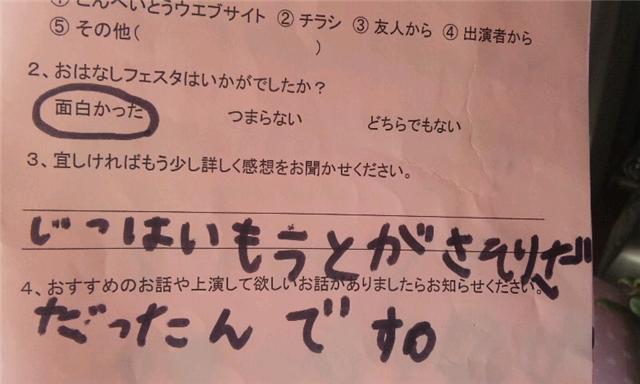 ① こんぺいとうウエブサイト ② チラシ ③ 友人から ④ 出演者から
⑤ その他(                    )
2、おはなしフェスタはいかがでしたか?
面白かった つまらない どちらでもない
3、宜しければもう少し詳しく感想をお聞かせください。
じつはいもうとがさそりだ
4、おすすめのお話や上演して欲しいお話がありましたらお知らせください。
だったんです。